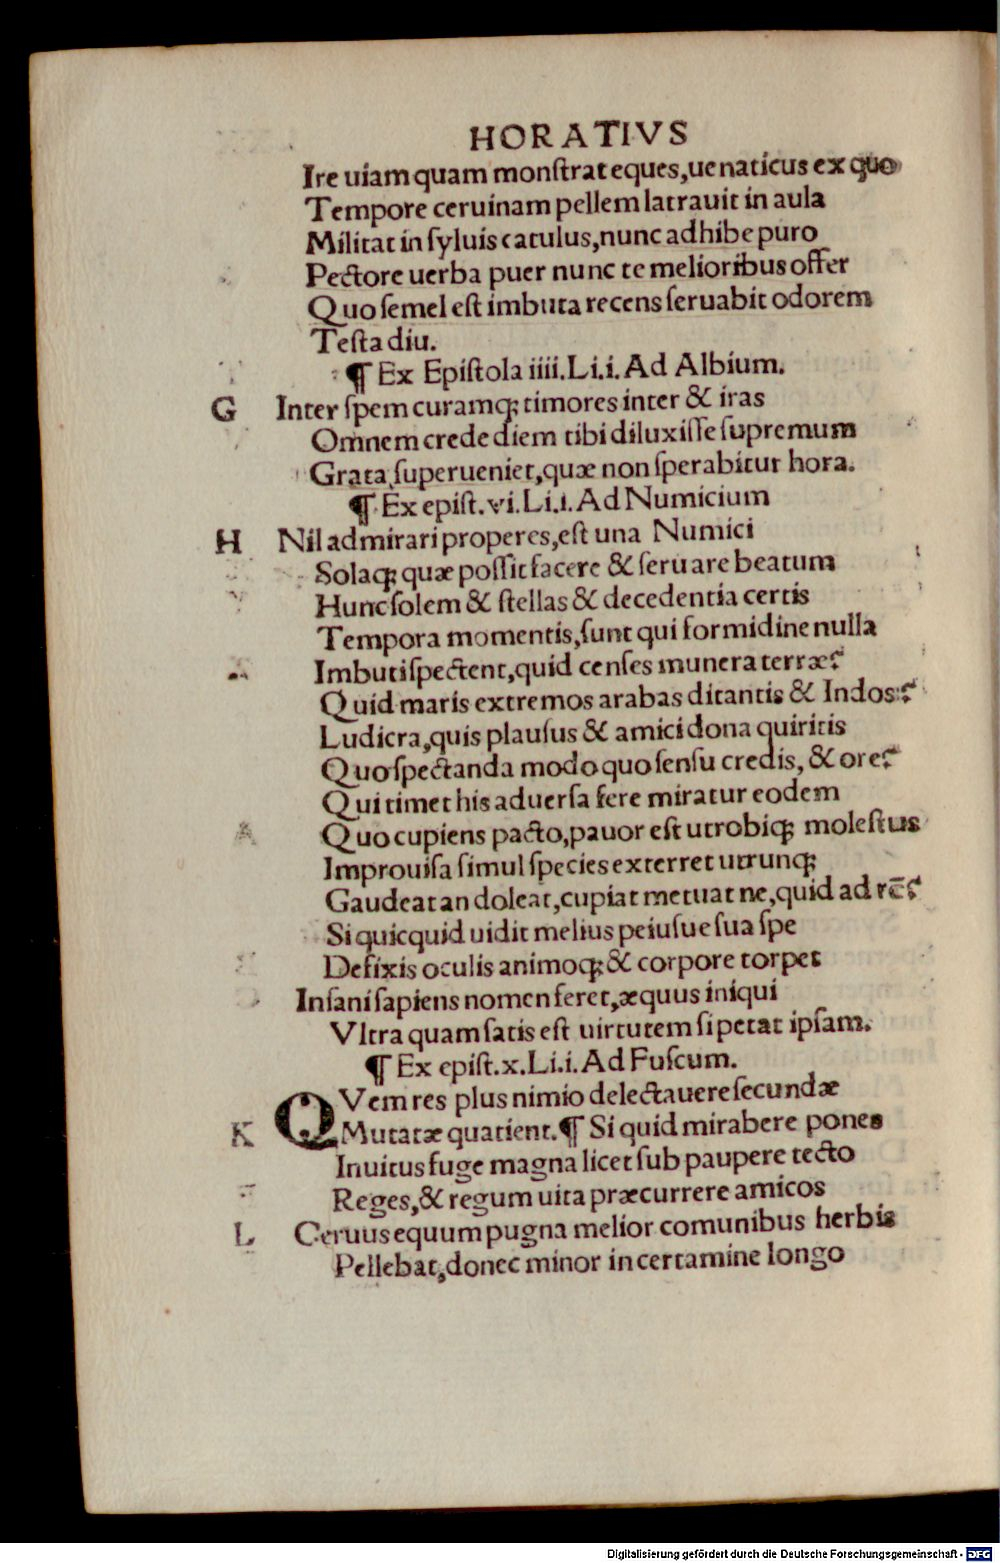 HORATIVS
Ire uiam quam monſtrat eques,uenaticus ex quo
Tempore ceruinam pellem latrauit in aula
Militat in ſyluis catulus,nunc adhibe puro
Pectore uerba puer nunc te melioribus offer
Quo ſemel eſt imbuta recens ſeruabit odorem
Teſta diu.
¶ Ex Epiſtola iiii.Li.i.Ad Albium.
G Inter ſpem curamq; timores inter & iras
Omnem crede diem tibi diluxiſſe ſupremum
Grata ſuperueniet,quæ non ſperabitur hora.
¶ Ex epiſt.vi.Li.i.Ad Numicium
H Nil admirari properes,eſt una Numici
Solaq; quæ poſſit facere & ſeruare beatum
Hunc ſolem & ſtellas & decedentia certis
Tempora momentis,ſunt qui formidine nulla
Imbuti ſpectent,quid cenſes munera terræ?
Quid maris extremos arabas ditantis & Indos?
Ludicra,quis plauſus & amici dona quiritis
Quo ſpectanda modo quo ſenſu credis, & ore?
Qui timet his aduerſa fere miratur eodem
Quo cupiens pacto,pauor eſt utrobiq; moleſtus
Improuiſa ſimul ſpecies exterret utrunq;
Gaudeat an doleat,cupiat metuat ne,quid ad rē?
Si quicquid uidit melius peiuſue ſua ſpe
Defixis oculis animoq; & corpore torpet
Inſani ſapiens nomen feret,æquus iniqui
Vltra quam ſatis eſt uirtutem ſi petat ipſam.
¶ Ex epiſt.x.Li.i.Ad Fuſcum.
QVem res plus nimio delectauere ſecundæ
K Mutatæ quatient.¶ Si quid mirabere pones
Inuitus fuge magna licet ſub paupere tecto
Reges,& regum uita præcurrere amicos
L Ceruus equum pugna melior comunibus herbis
Pellebat,donec minor in certamine longo
Digitalisierung gefördert durch die Deutsche Forschungsgemeinschaft - DFG